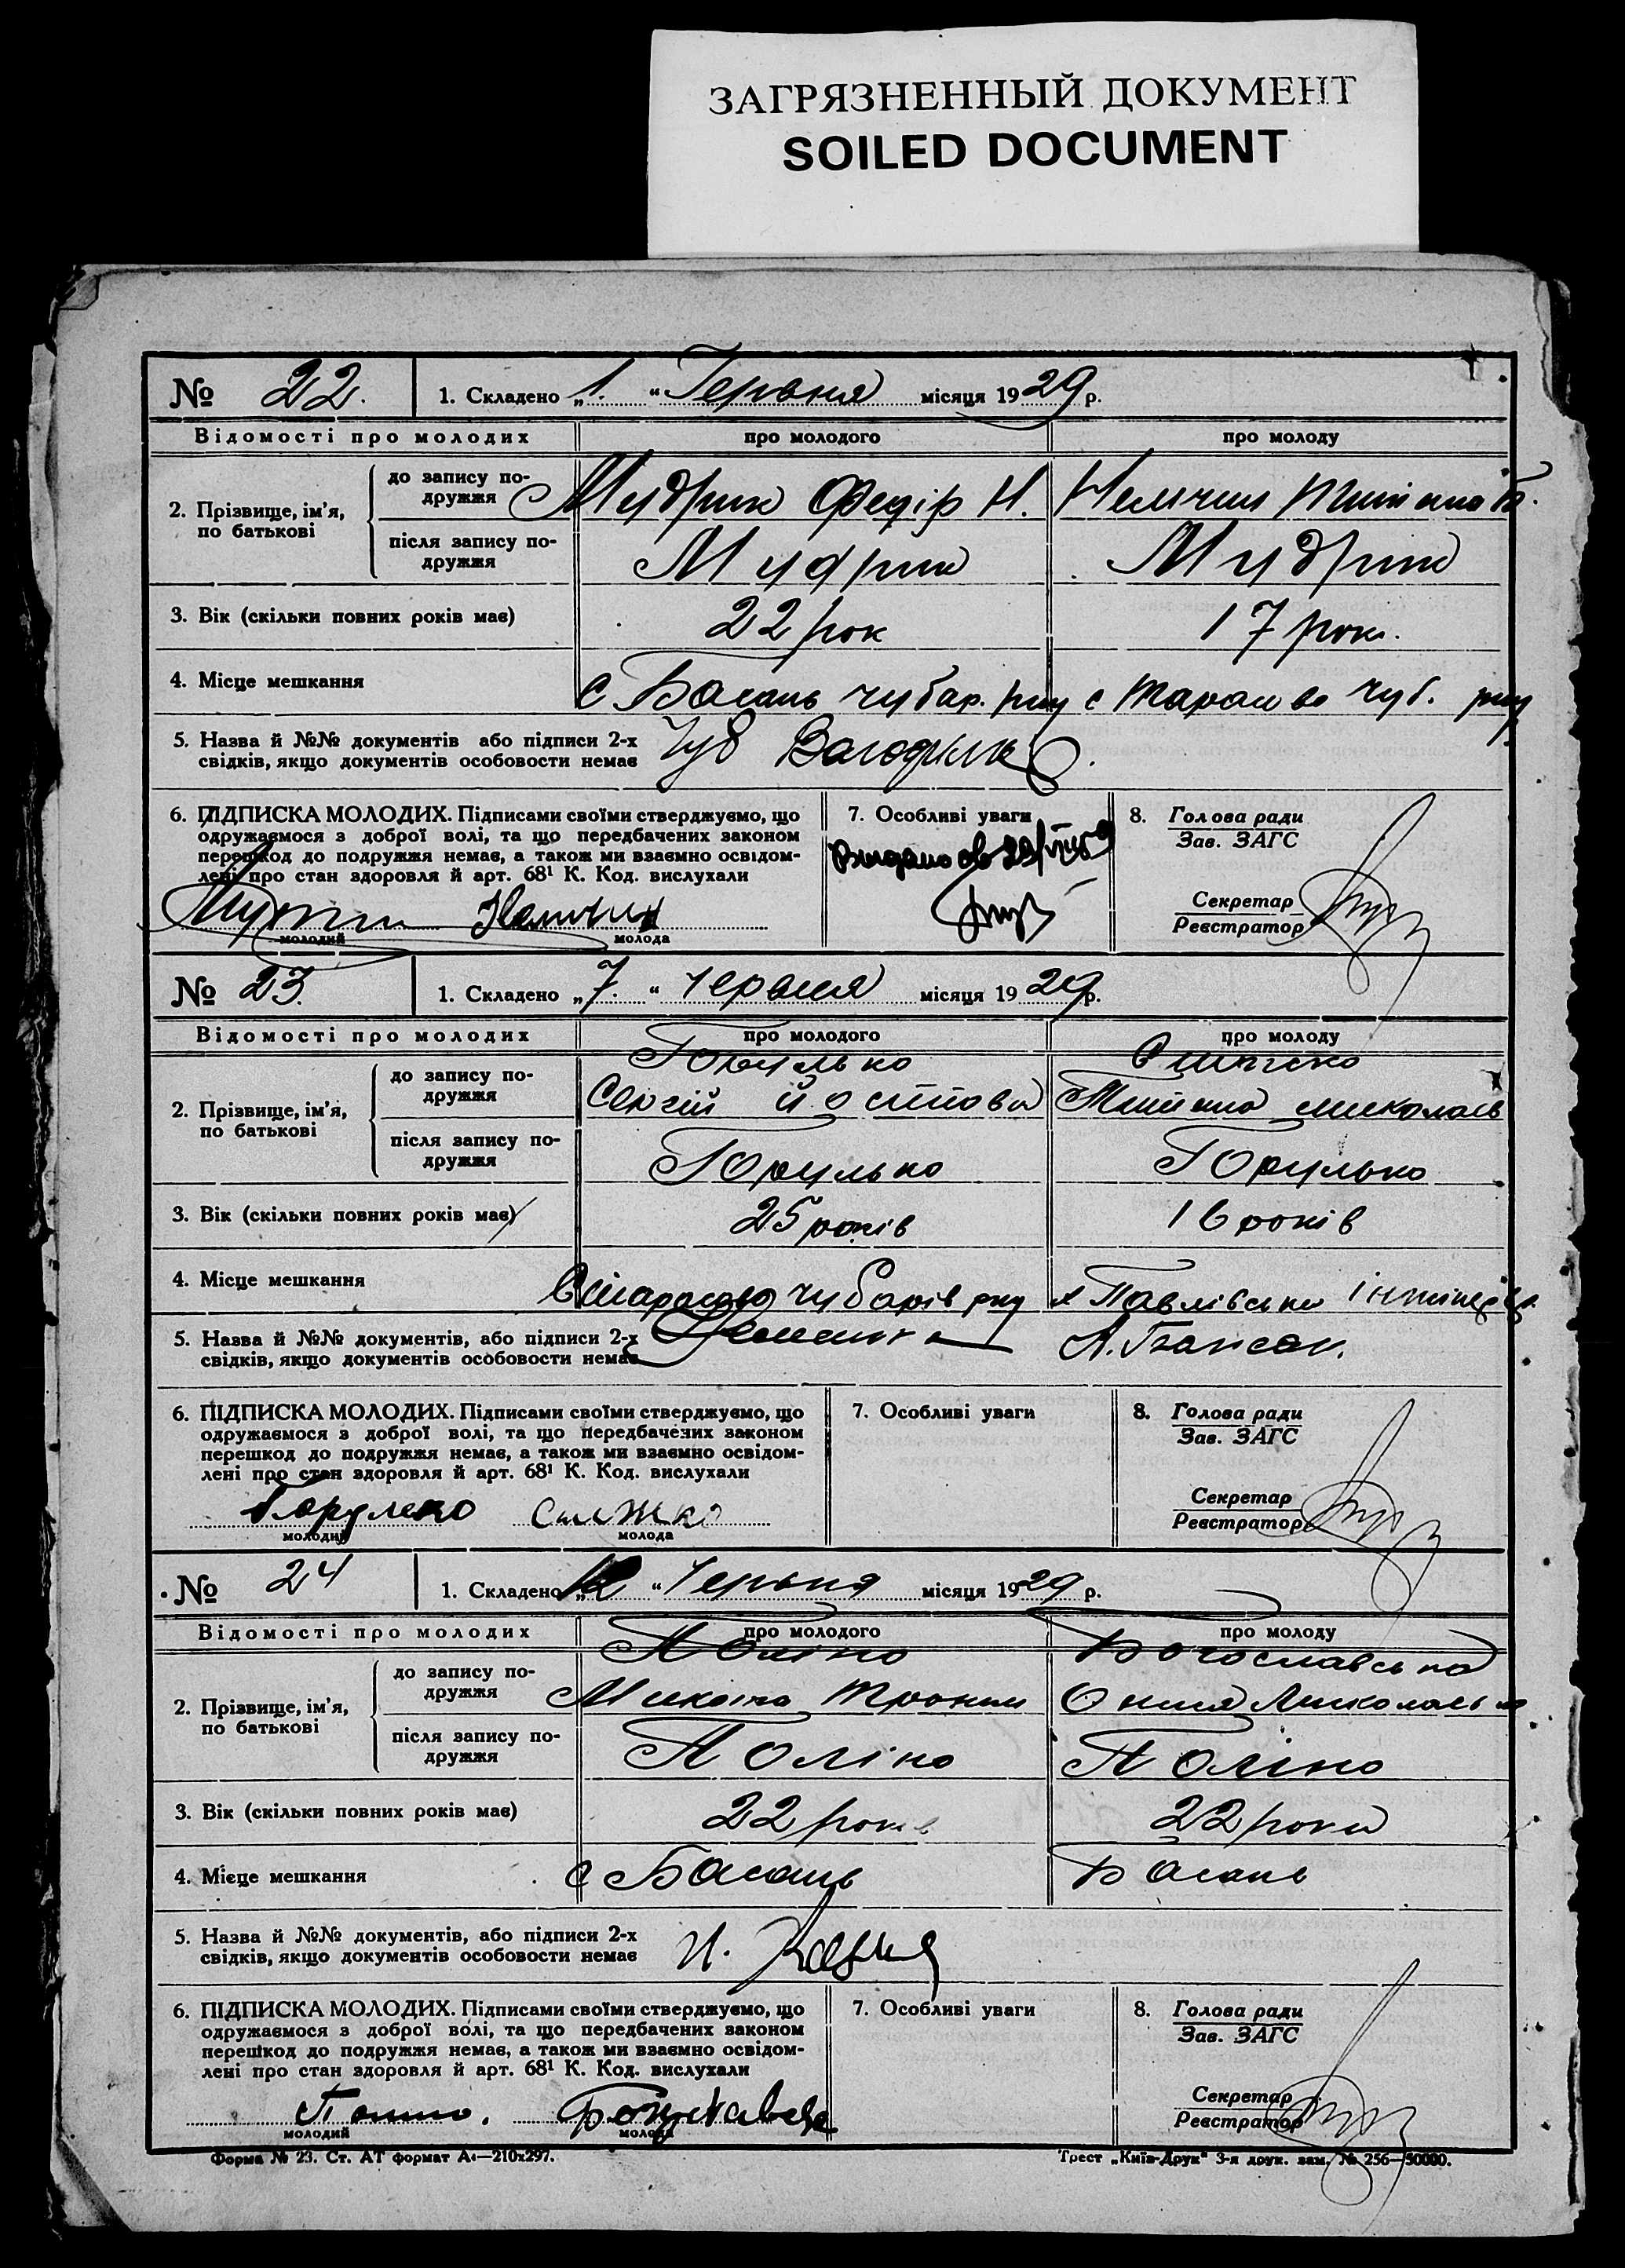 ЗАГРЯЗНЕННЫЙ ДОКУМЕНТ
SOILED DOCUMENT
№ 22. 1. Складено „1.“ Червня місяця 1929 р.
Відомості про молодих про молодого про молоду
2. Прізвище, ім’я, по батькові
до запису подружжя Мудрик Федір Н.
після запису подружжя Мудрик Мудрик
3. Вік (скільки повних років має) 22 рок 17 рок.
4. Місце мешкання с Басань чубар. рну с чуб. рну
5. Назва й №№ документів або підписи 2-х
свідків, якщо документів особовости немає
6. ПІДПИСКА МОЛОДИХ. Підписами своїми стверджуємо, що
одружаємося з доброї волі, та що передбачених законом
перешкод до подружжя немає, а також ми взаємно освідом-
лені про стан здоровля й арт. 68¹ К. Код. вислухали
молодий молода
7. Особливі уваги
8. Голова ради
Зав. ЗАГС
Секретар
Реєстратор
№ 23. 1. Складено „7.“ червня місяця 1929 р.
Відомості про молодих про молодого про молоду
2. Прізвище, ім’я, по батькові
до запису подружжя Горулько
Сергій
після запису подружжя Горулько Горулько
3. Вік (скільки повних років має) 25 років 16 років
4. Місце мешкання чубарів рну Павлівська
5. Назва й №№ документів, або підписи 2-х
свідків, якщо документів особовости немає
6. ПІДПИСКА МОЛОДИХ. Підписами своїми стверджуємо, що
одружаємося з доброї волі, та що передбачених законом
перешкод до подружжя немає, а також ми взаємно освідом-
лені про стан здоровля й арт. 68¹ К. Код. вислухали
Горулько
молодий молода
7. Особливі уваги
8. Голова ради
Зав. ЗАГС
Секретар
Реєстратор
№ 24 1. Складено „12“ Червня місяця 1929 р.
Відомості про молодих про молодого про молоду
2. Прізвище, ім’я, по батькові
до запису подружжя Поліно Богославська
Микита Трохим
після запису подружжя Поліно Поліно
3. Вік (скільки повних років має) 22 років 22 роки
4. Місце мешкання с Басань Басань
5. Назва й №№ документів, або підписи 2-х
свідків, якщо документів особовости немає
6. ПІДПИСКА МОЛОДИХ. Підписами своїми стверджуємо, що
одружаємося з доброї волі, та що передбачених законом
перешкод до подружжя немає, а також ми взаємно освідом-
лені про стан здоровля й арт. 68¹ К. Код. вислухали
молодий молода
7. Особливі уваги
8. Голова ради
Зав. ЗАГС
Секретар
Реєстратор
Форма № 23. Ст. АТ формат А₄—210х297. Трест „Київ-Друк“ 3-я друк. зам. № 256—50000.